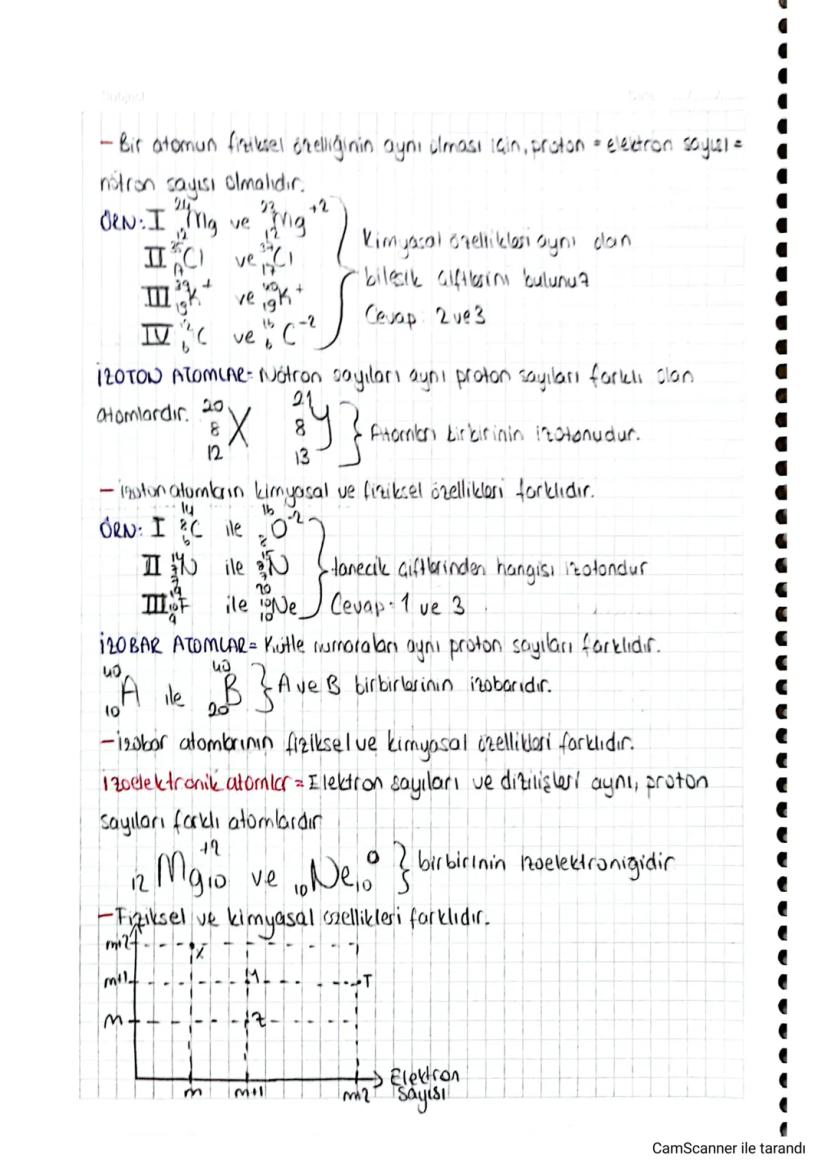 - Bir atomun fiziksel özelliğinin aynı olması için, proton = elektron sayısı =
nötron sayısı olmalıdır.
ÖRN: I ²⁴₁₂Mg ve ²³₁₂Mg⁺²
II ³⁵₁₇Cl ve ³⁷₁₇Cl
III ³⁹₁₉K⁺ ve ⁴⁰₁₉K⁺
IV ¹²₆C ve ¹⁶₆C⁻²
Kimyasal özellikleri aynı olan
bileşik çiftlerini bulunuz
Cevap: 2 ve 3
İZOTON ATOMLAR= Nötron sayıları aynı proton sayıları farklı olan
atomlardır. 20 8 12 X 21 8 13 Y } Atomları birbirinin izotonudur.
- izoton atomların kimyasal ve fiziksel özellikleri farklıdır.
ÖRN: I 14 8 6 C ile 16 8 O⁻²
II 14 7 7 N ile 15 8 7 N
III 19 10 9 F ile 20 10 10 Ne
tanecik çiftlerinden hangisi izotondur
Cevap: 1 ve 3
İZOBAR ATOMLAR= Kütle numaraları aynı proton sayıları farklıdır.
⁴⁰₁₀A ile ⁴⁰₂₀B } A ve B birbirlerinin izobarıdır.
- izobar atomlarının fiziksel ve kimyasal özellikleri farklıdır.
izoelektronik atomlar = Elektron sayıları ve dizilişleri aynı, proton
sayıları farklı atomlardır
₁₂Mg₁₀⁺² ve ₁₀Ne₁₀⁰ } birbirinin izoelektroniğidir
- Fiziksel ve kimyasal özellikleri farklıdır.
m+2 X
m+1 Y T
m Z
Elektron
m m+1 m+2 sayısı
CamScanner ile tarandı